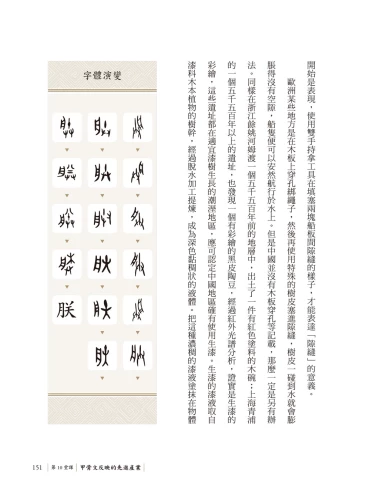 開始是表現，使用雙手持拿工具在填塞兩塊船板間隙縫的樣子，才能表達「隙縫」的意義。
歐洲某些地方是在木板上穿孔綁繩子，然後再使用特殊的樹皮塞進隙縫，樹皮一碰到水就會膨
脹得沒有空隙，船隻便可以安然航行於水上。但是中國並沒有木板穿孔等記載，那麼一定是另有辦
法。同樣在浙江餘姚河姆渡一個五千五百年前的地層中，出土了一件有紅色塗料的木碗；上海青浦
的一個五千五百年以上的遺址，也發現一個有彩繪的黑皮陶豆，經過紅外光譜分析，證實是生漆的
彩繪，這些遺址都在適宜漆樹生長的潮溼地區，應可認定中國地區確有使用生漆。生漆的漆液取自
漆科木本植物的樹幹，經過脫水加工提煉，成為深色黏稠狀的液體。把這種濃稠的漆液塗抹在物體
字體演變
朕
151
第10堂課
甲骨文反映的先進產業